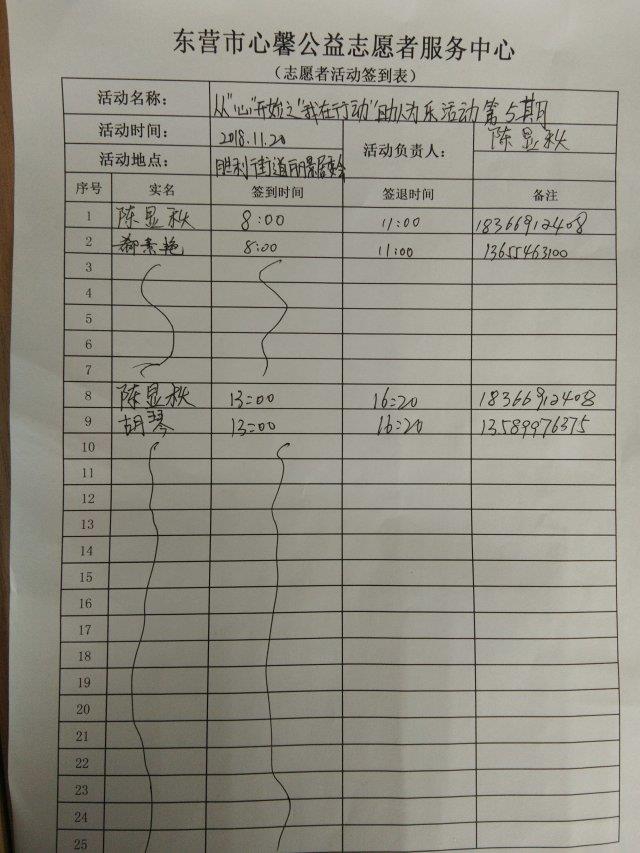 东营市心馨公益志愿者服务中心
（志愿者活动签到表）
活动名称： 从"心"开始之"我在行动"助人为乐活动第5期
活动时间： 2018.11.20 活动负责人： 陈显秋
活动地点： 胜利街道丽景居委会
序号 实名 签到时间 签退时间 备注
1 陈显秋 8:00 11:00 18366912408
2 素艳 8:00 11:00 13655463100
3
4
5
6
7
8 陈显秋 13:00 16:20 18366912408
9 胡琴 13:00 16:20 13589976375
10
11
12
13
14
15
16
17
18
19
20
21
22
23
24
25